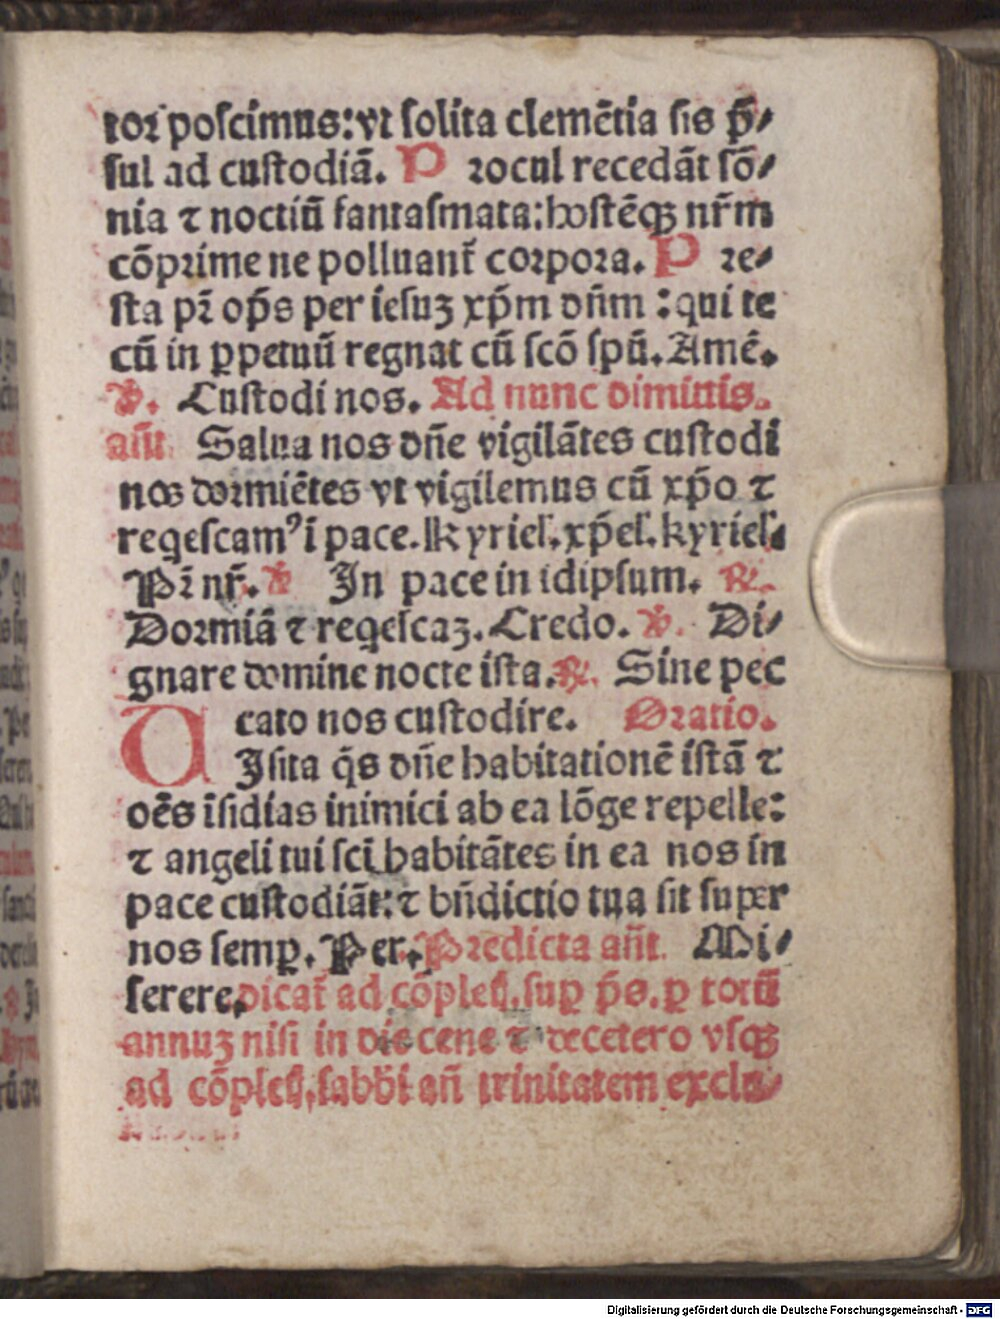 toꝛ poſcimus: vt ſolita clemētia ſis p̄⸗
ſul ad cuſtodiā. P ꝛocul recedāt ſō⸗
nia ⁊ noctiū fantaſmata: hoſtēqꝫ nr̄m
cōpꝛime ne polluant̄ coꝛpoꝛa. P ꝛe⸗
ſta pꝛ̄ op̄s per ieſuꝫ xp̄m dn̄m : qui te
cū in ꝑpetuū regnat cū ſcō ſpū. Amē.
℣. Cuſtodi nos. Ad nunc dimittis.
an̄t. Salua nos dn̄e vigilātes cuſtodi
nos doꝛmiētes vt vigilemus cū xp̄o ⁊
reqeſcamꝰ ī pace. Kyrieſ. xp̄eſ. kyrieſ.
Pꝛ̄ nr̄. ℣ In pace in idipſum. ℟.
Doꝛmiā ⁊ reqeſcaꝫ. Credo. ℣. Di⸗
gnare domine nocte iſta. ℟. Sine pec
cato nos cuſtodire. Oꝛatio.
V Iſita q̄s dn̄e habitationē iſtā ⁊
oēs īſidias inimici ab ea lōge repelle:
⁊ angeli tui ſcī habitātes in ea nos in
pace cuſtodiāt: ⁊ bn̄dictio tua ſit ſuper
nos ſemꝑ. Per. Pꝛedicta an̄t. Mi⸗
ſerere. dicat̄ ad cōpleꝉ. ſuꝑ p̄s. ꝑ totū
annuꝫ niſi in die cene ⁊ decetero vſqꝫ
ad cōpleꝉ. ſabb̄i an̄ trinitatem exclu⸗
Digitalisierung gefördert durch die Deutsche Forschungsgemeinschaft - DFG